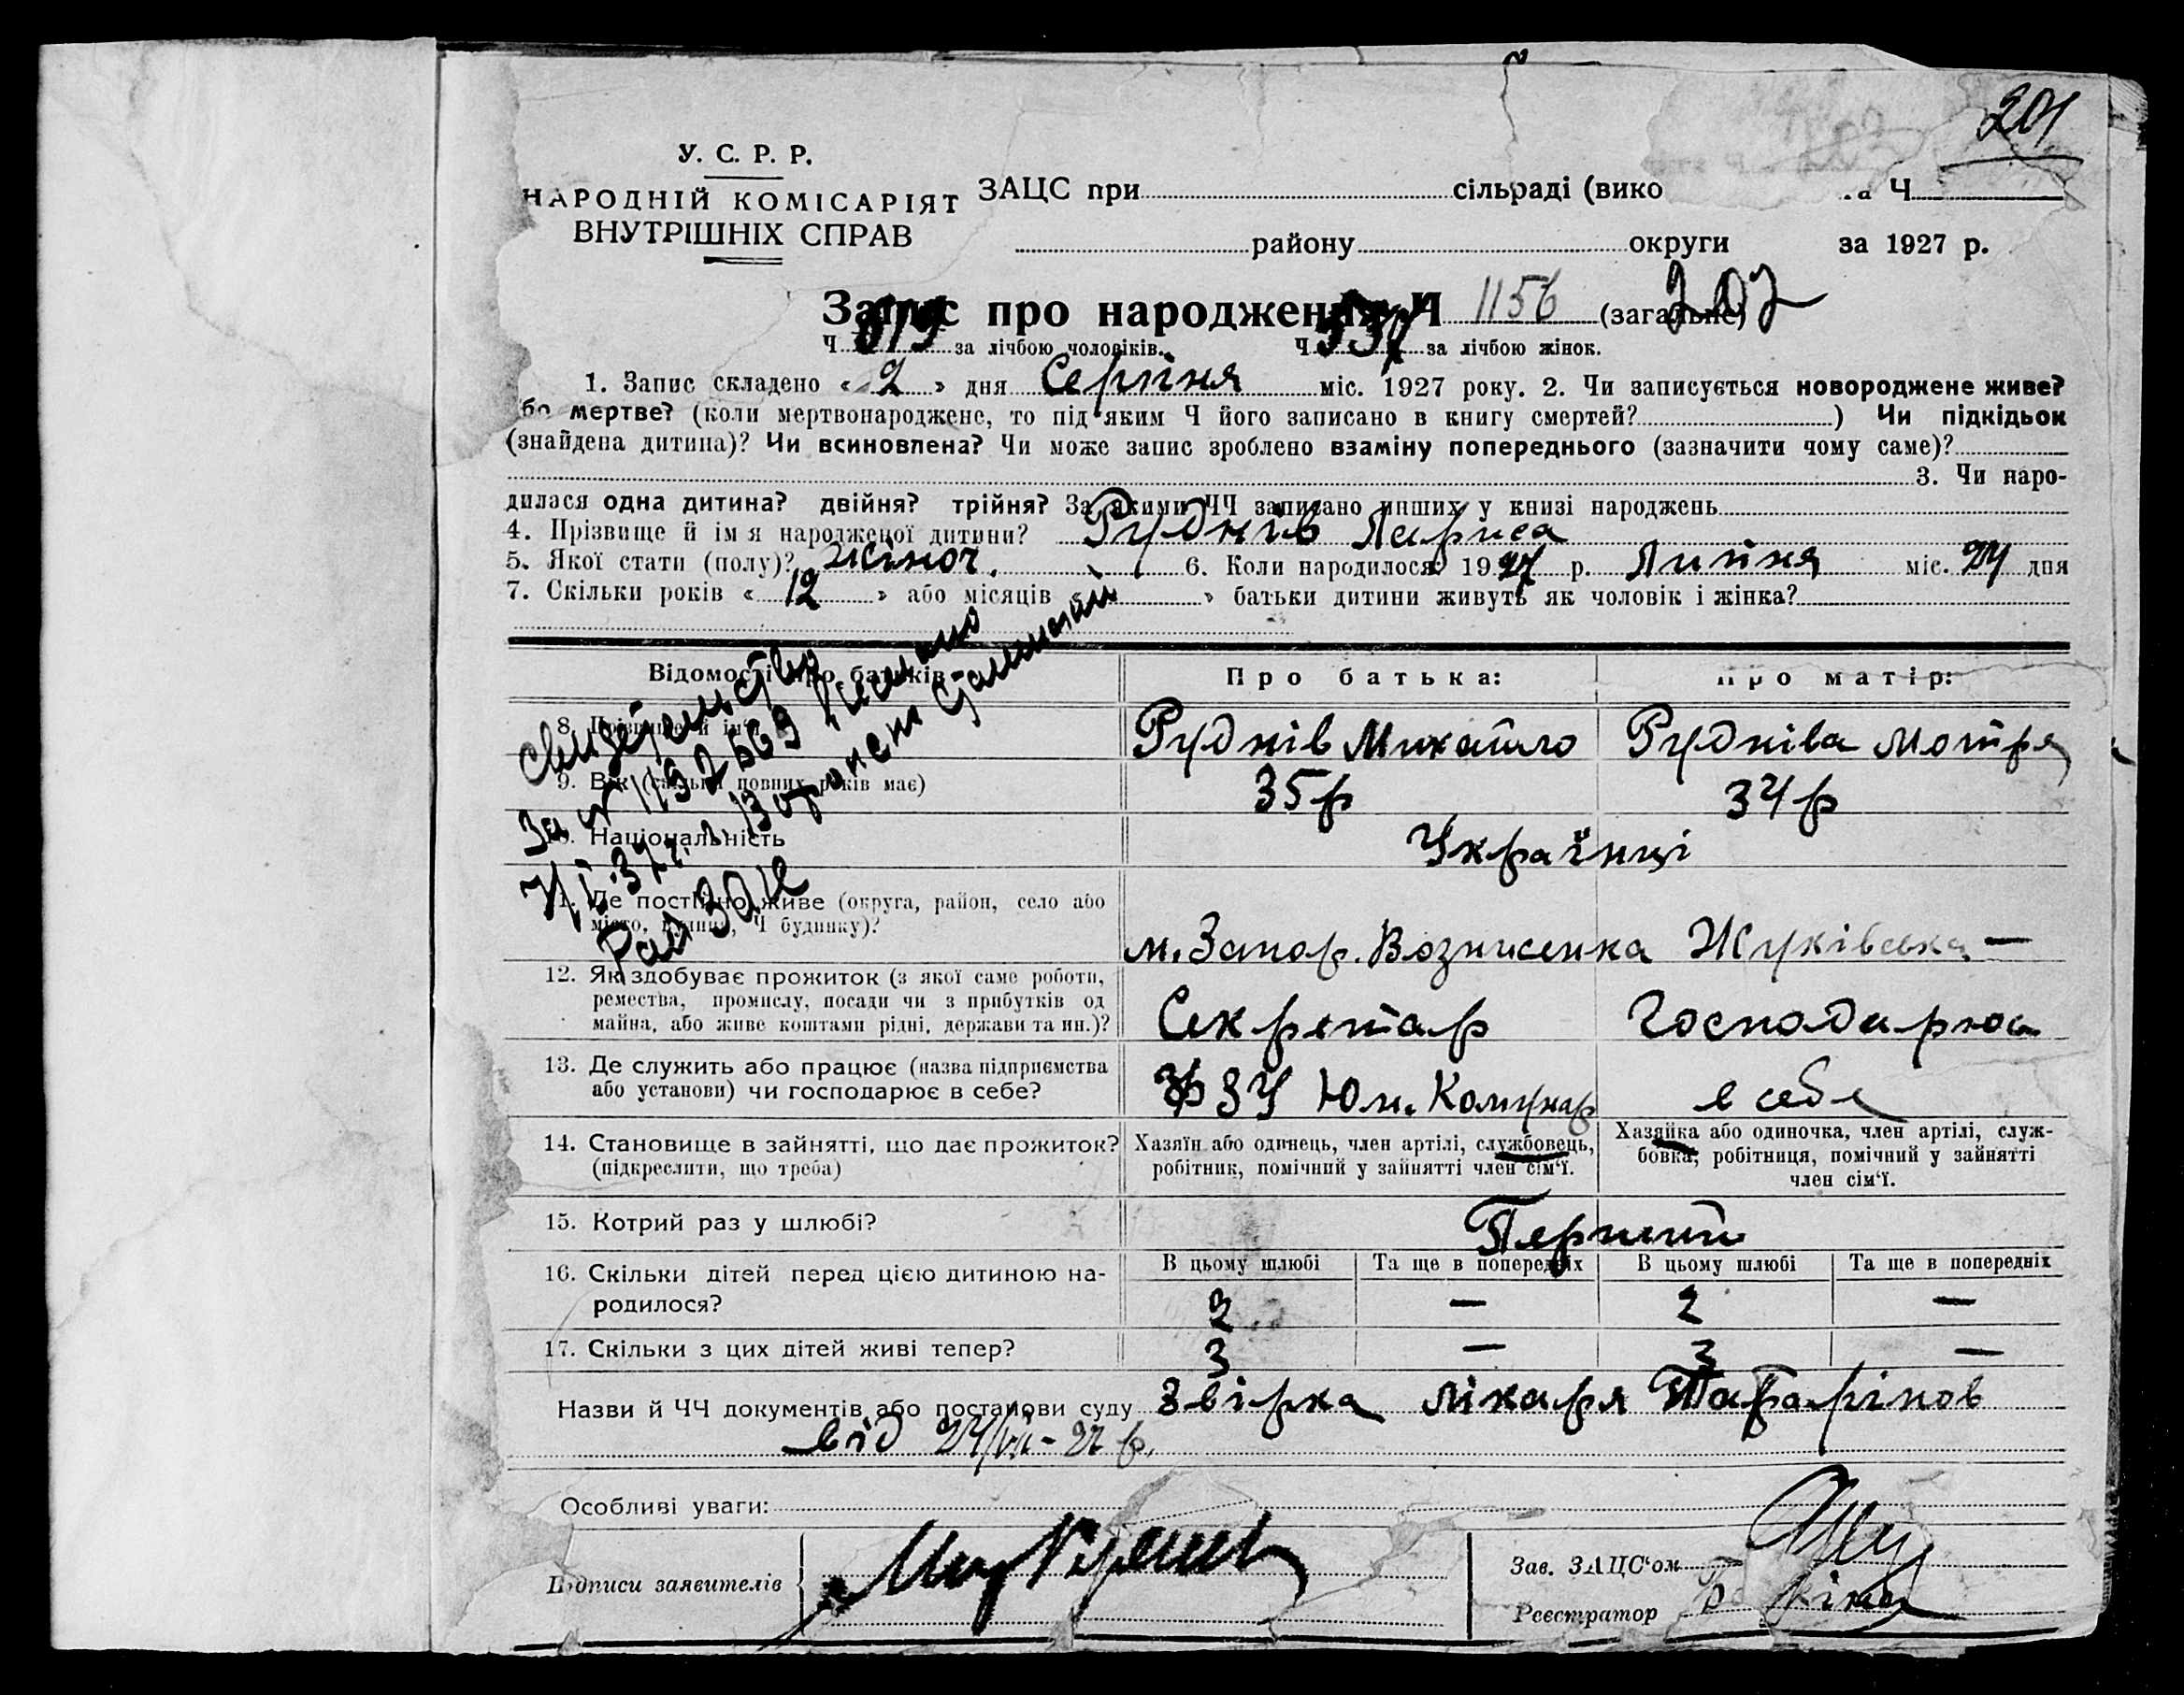 201
У. С. Р. Р.
НАРОДНІЙ КОМІСАРІЯТ
ВНУТРІШНІХ СПРАВ
ЗАЦС при сільраді (вико Ч
району округи за 1927 р.
Запис про народження Ч 1156 (загальне) 202
Ч 619 за лічбою чоловіків. Ч 537 за лічбою жінок.
1. Запис складено « 2 » дня Серпня міс. 1927 року. 2. Чи записується новороджене живе?
бо мертве? (коли мертвонароджене, то під яким Ч його записано в книгу смертей? ) Чи підкідьок
(знайдена дитина)? Чи всиновлена? Чи може запис зроблено взаміну попереднього (зазначити чому саме)?
3. Чи наро-
дилася одна дитина? двійня? трійня? За якими ЧЧ записано инших у книзі народжень
4. Прізвище й ім я народженої дитини? Руднів Лариса
5. Якої стати (полу)? жіноч. 6. Коли народилося: 1927 р. Липня міс. 24 дня
7. Скільки років « 12 » або місяців « » батьки дитини живуть як чоловік і жінка?
Відомості про батьків Про батька: Про матір:
8. Прізвище й ім'я Руднів Михайло Рудніва Мотря
9. Вік (скільки повних років має) 35 р 34 р
10. Національність Українці
11. Де постійно живе (округа, район, село або
місто, вулиця, Ч будинку)? м. Запор. Вознисенка Жуківська —
12. Як здобуває прожиток (з якої саме роботи,
ремества, промислу, посади чи з прибутків од
майна, або живе коштами рідні, держави та ин.)? Секретар Господарює
13. Де служить або працює (назва підприємства
або установи) чи господарює в себе? ФЗУ Юн. Комунар в себе
14. Становище в зайнятті, що дає прожиток?
(підкреслити, що треба)
Хазяїн або одинець, член артілі, службовець,
робітник, помічний у зайнятті член сім'ї.
Хазяйка або одиночка, член артілі, служ-
бовка, робітниця, помічний у зайнятті
член сім'ї.
15. Котрий раз у шлюбі? Перший
16. Скільки дітей перед цією дитиною на-
родилося?
В цьому шлюбі Та ще в попередніх В цьому шлюбі Та ще в попередніх
2 — 2 —
17. Скільки з цих дітей живі тепер? 3 — 3 —
Назви й ЧЧ документів або постанови суду Звірка лікаря
від 24/VII - 27 р.
Особливі уваги:
Підписи заявителів
Зав. ЗАЦС'ом
Реєстратор
Свидетельство
За № 1192669